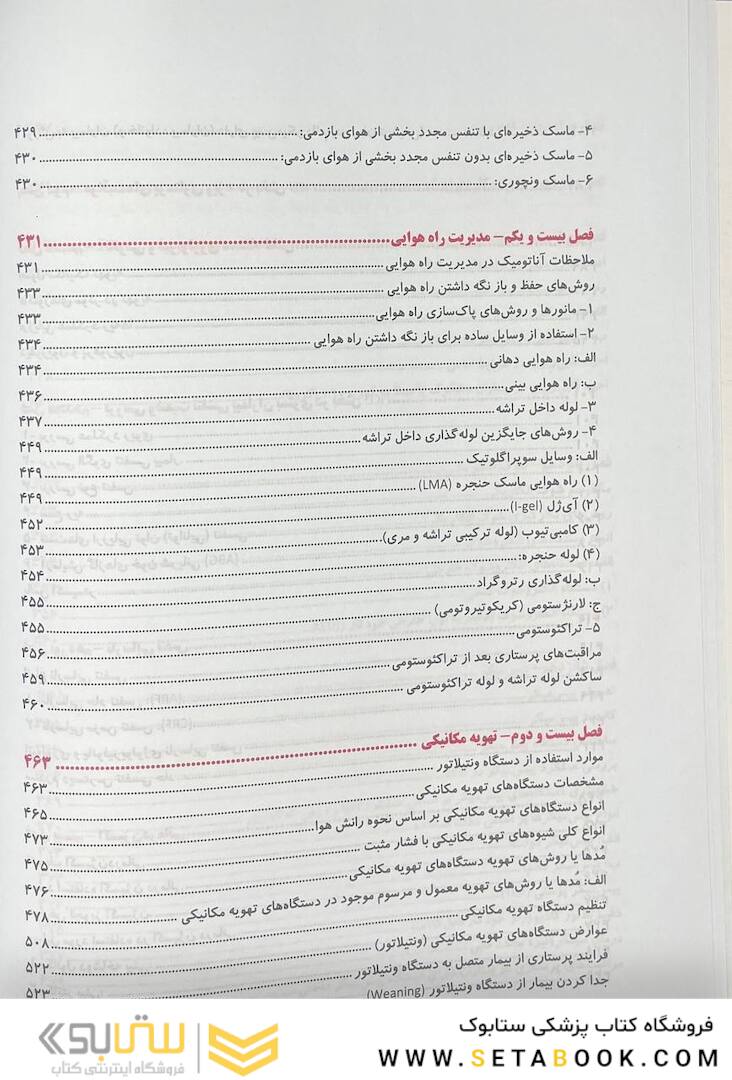 ۴- ماسک ذخیره‌ای با تنفس مجدد بخشی از هوای بازدمی: ........ ۴۲۹
۵- ماسک ذخیره‌ای بدون تنفس مجدد بخشی از هوای بازدمی: ........ ۴۳۰
۶- ماسک ونچوری: ........ ۴۳۰
فصل بیست و یکم- مدیریت راه هوایی ........ ۴۳۱
ملاحظات آناتومیک در مدیریت راه هوایی ........ ۴۳۱
روش‌های حفظ و باز نگه داشتن راه هوایی ........ ۴۳۳
۱- مانورها و روش‌های پاک‌سازی راه هوایی ........ ۴۳۳
۲- استفاده از وسایل ساده برای باز نگه داشتن راه هوایی ........ ۴۳۴
الف: راه هوایی دهانی ........ ۴۳۴
ب: راه هوایی بینی ........ ۴۳۶
۳- لوله داخل تراشه ........ ۴۳۷
۴- روش‌های جایگزین لوله‌گذاری داخل تراشه ........ ۴۴۹
الف: وسایل سوپراگلوتیک ........ ۴۴۹
(۱) راه هوایی ماسک حنجره (LMA) ........ ۴۴۹
(۲) آی‌ژل (I-gel) ........ ۴۵۲
(۳) کامبی‌تیوب (لوله ترکیبی تراشه و مری) ........ ۴۵۳
(۴) لوله حنجره: ........ ۴۵۴
ب: لوله‌گذاری رتروگراد ........ ۴۵۵
ج: لارنژستومی (کریکوتیروتومی) ........ ۴۵۵
۵- تراکئوستومی ........ ۴۵۶
مراقبت‌های پرستاری بعد از تراکئوستومی ........ ۴۵۹
ساکشن لوله تراشه و لوله تراکئوستومی ........ ۴۶۰
فصل بیست و دوم- تهویه مکانیکی ........ ۴۶۳
موارد استفاده از دستگاه ونتیلاتور ........ ۴۶۳
مشخصات دستگاه‌های تهویه مکانیکی ........ ۴۶۵
انواع دستگاه‌های تهویه مکانیکی بر اساس نحوه رانش هوا ........ ۴۷۳
انواع کلی شیوه‌های تهویه مکانیکی با فشار مثبت ........ ۴۷۵
مُدها یا روش‌های تهویه دستگاه‌های تهویه مکانیکی ........ ۴۷۶
الف: مُدها یا روش‌های تهویه معمول و مرسوم موجود در دستگاه‌های تهویه مکانیکی ........ ۴۷۸
تنظیم دستگاه تهویه مکانیکی ........ ۵۰۸
عوارض دستگاه‌های تهویه مکانیکی (ونتیلاتور) ........ ۵۲۲
فرایند پرستاری از بیمار متصل به دستگاه ونتیلاتور ........ ۵۲۳
جدا کردن بیمار از دستگاه ونتیلاتور (Weaning)
فروشگاه کتاب پزشکی ستابوک
WWW.SETABOOK.COM
ستابوک
فروشگاه اینترنتی کتاب